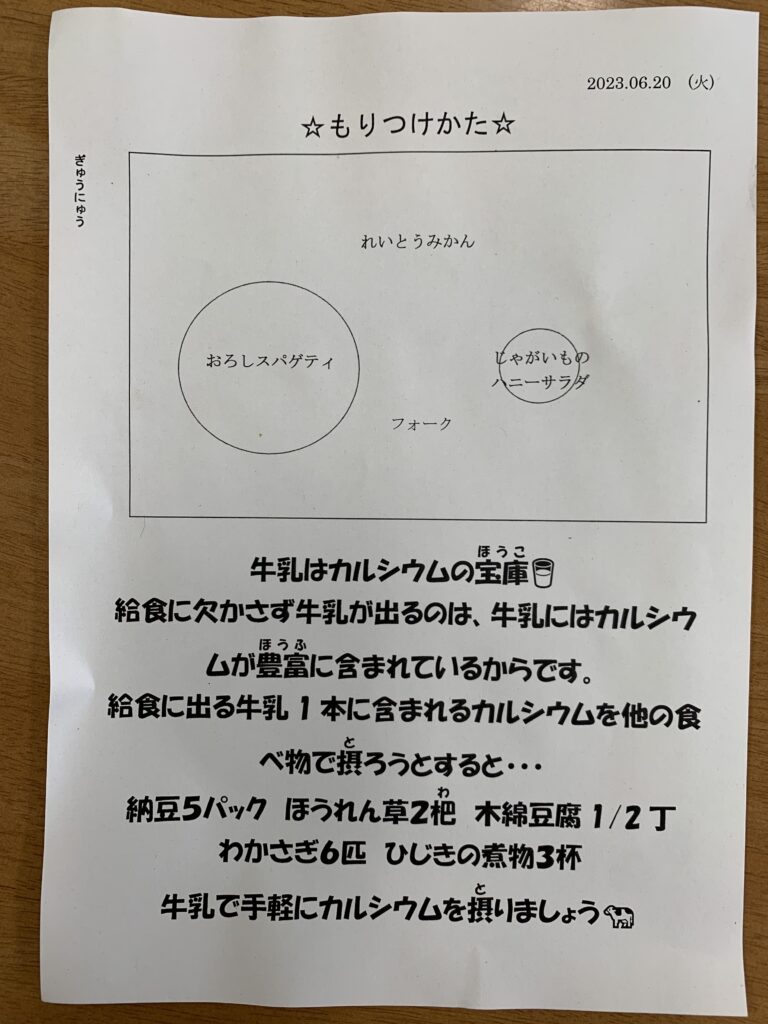 2023.06.20 (火)
☆もりつけかた☆
ぎゅうにゅう
れいとうみかん
おろしスパゲティ
じゃがいもの
ハニーサラダ
フォーク
ほうこ
牛乳はカルシウムの宝庫
給食に欠かさず牛乳が出るのは、牛乳にはカルシウ
ほうふ
ムが豊富に含まれているからです。
給食に出る牛乳1本に含まれるカルシウムを他の食
と
べ物で摂ろうとすると・・・
わ
納豆5パック ほうれん草2杷 木綿豆腐1/2丁
わかさぎ6匹 ひじきの煮物3杯
と
牛乳で手軽にカルシウムを摂りましょう